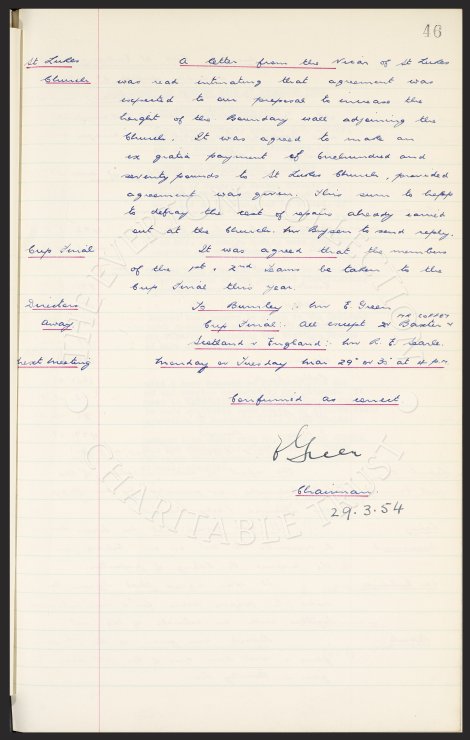 46
St Lukes Church
A letter from the Vicar of St Lukes
was read intimating that agreement was
expected to our proposal to increase the
height of the Boundary wall adjoining the
Church. It was agreed to make an
ex gratia payment of Onehundred and
seventy pounds to St Lukes Church, provided
agreement was given. This sum to help
to defray the cost of repairs already carried
out at the Church. Mr Dyson to send reply.
Cup Final
It was agreed that the members
of the 1st & 2nd Teams be taken to the
Cup Final this year.
Directors Away
To Burnley :- Mr E Green
MR COFFEY
Cup Final:- All except Dr Baxter &
Scotland v England:- Mr R. E. Searle.
Next meeting
Monday or Tuesday Mar 29th or 30 at 4 p.m.
Confirmed as correct
E Green
Chairman
29.3.54
THE EVERTON COLLECTION
CHARITABLE TRUST